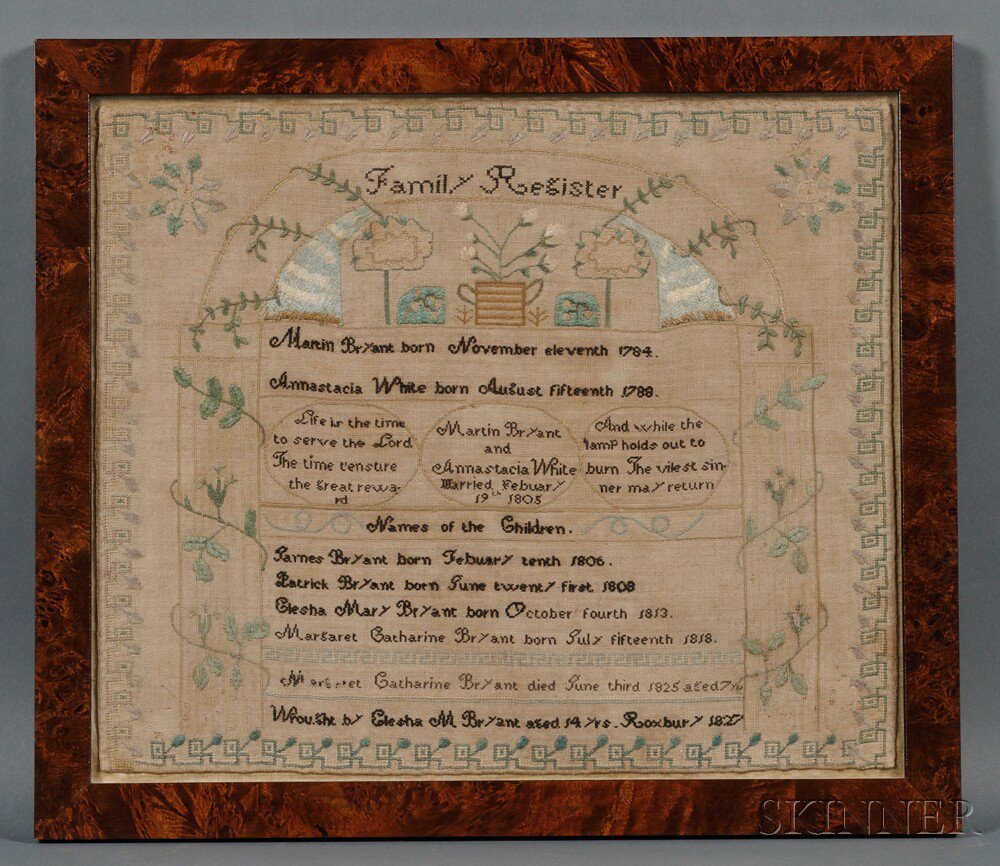 Family Register
Martin Bryant born November eleventh 1784.
Annastacia White born August fifteenth 1788.
Life is the time
to serve the Lord
The time t'ensure
the great rewa-
rd
Martin Bryant
and
Annastacia White
Married Febuary
19th 1805
And while the
lamp holds out to
burn The vilest sin-
ner may return
Names of the Children.
James Bryant born Febuary tenth 1806.
Patrick Bryant born June twenty first 1808
Elesha Mary Bryant born October fourth 1813.
Margaret Catharine Bryant born July fifteenth 1818.
Margaret Catharine Bryant died June third 1825 aged 7
Wrought by Elesha M Bryant aged 14 yrs. Roxbury 1827
SKINNER